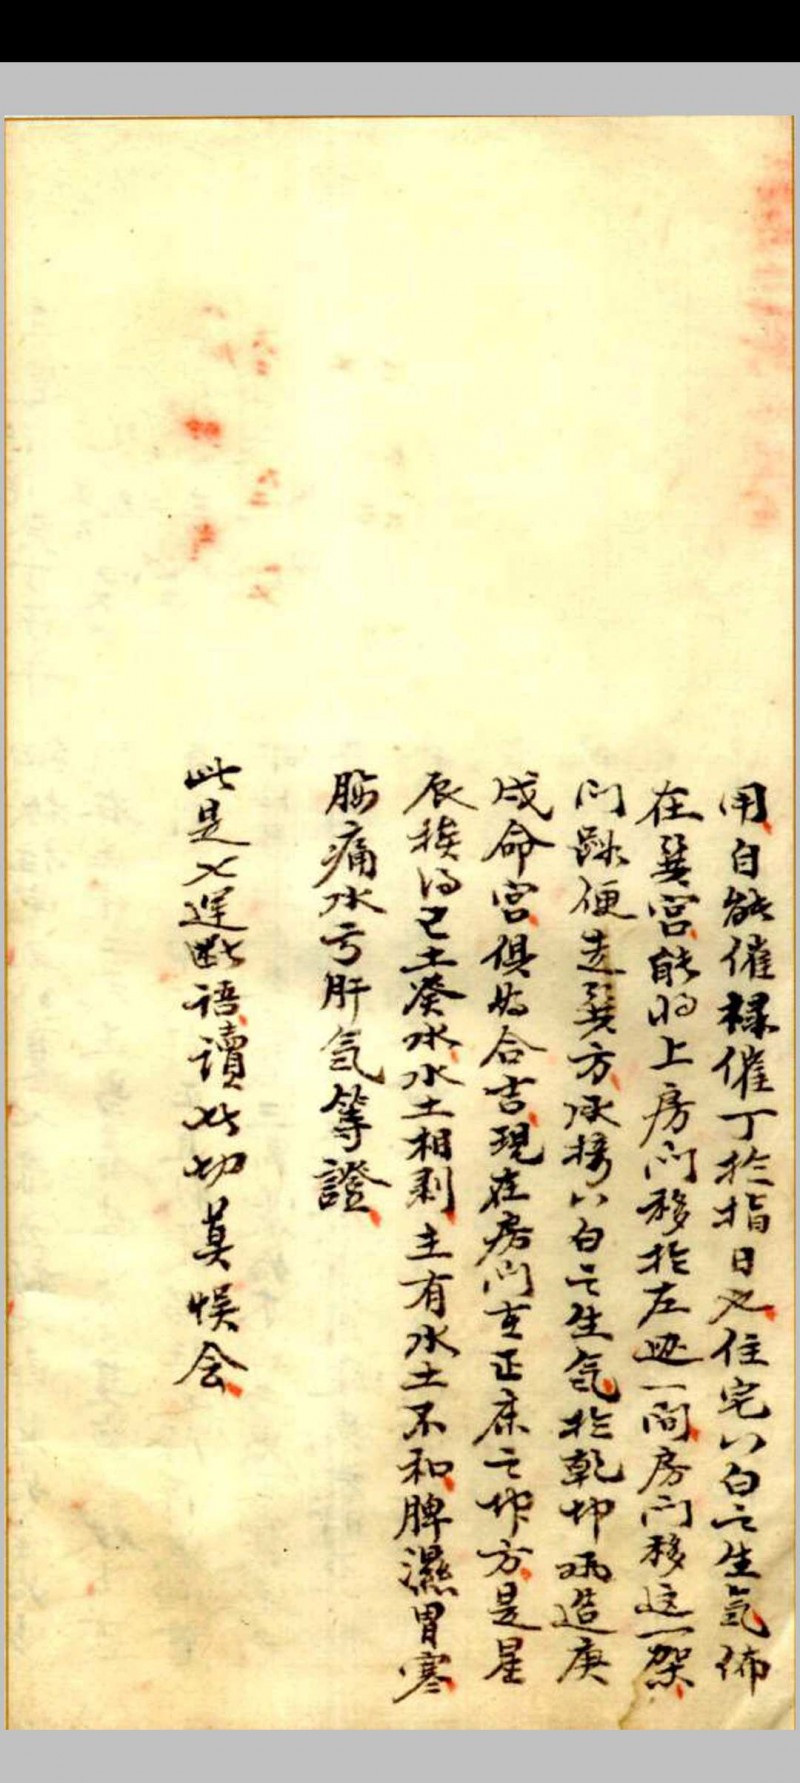 用自能催祿催丁於指日也住宅八白之生氣佈
在巽宮能將上房门移於左边一间房门移这一架
门路便走巽方承接八白之生氣於乾坤兩造庚
戌命宮俱為合吉現在房门在正床之坤方是星
辰挨得己土癸水水土相剋主有水土不和脾濕胃寒
腸痛水亏肝氣等證
此是七運断语讀此切莫悮会